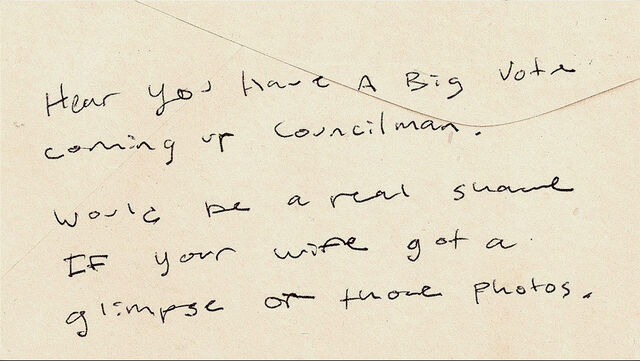 Hear you have A Big vote
coming up Councilman.
would be a real shame
IF your wife got a
glimpse of those photos.